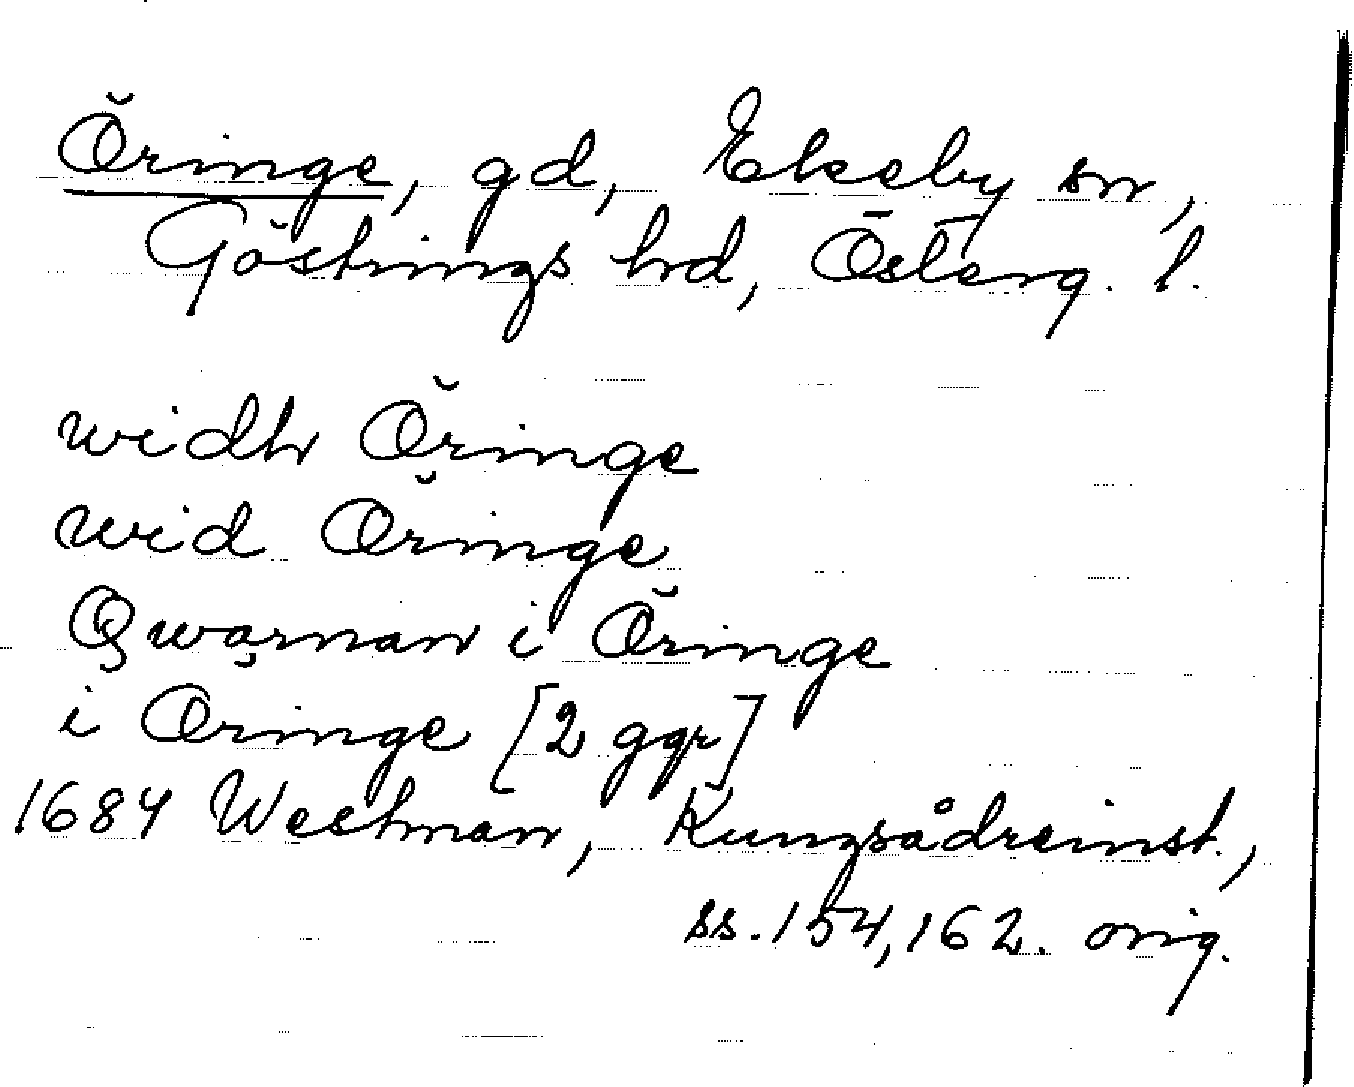 Öringe, gd, Ekeby sn,
Göstrings hd, Österg. l.
widh Öringe
wid Öringe
Qwarnan i Öringe
i Oringe [2 ggr]
1684 Westman, Kungsådreinst.,
ss. 154, 162. orig.